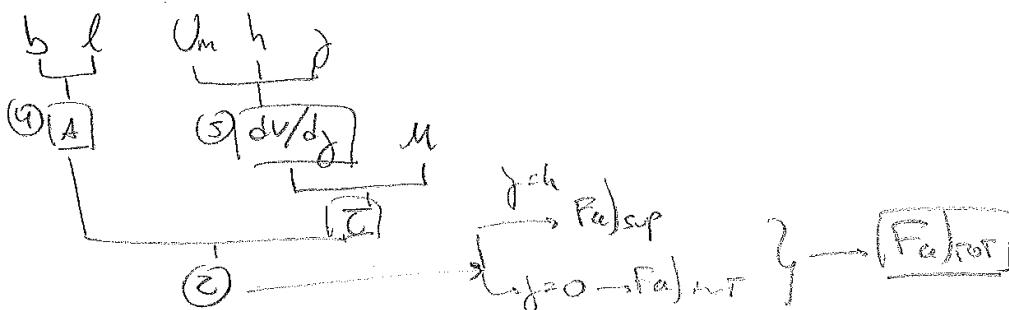 b l Um h y
④ A ③ dv/dy μ
τ
②
y=h
Fa)sup
y=0 → Fa)inf
} → Fa)TOT